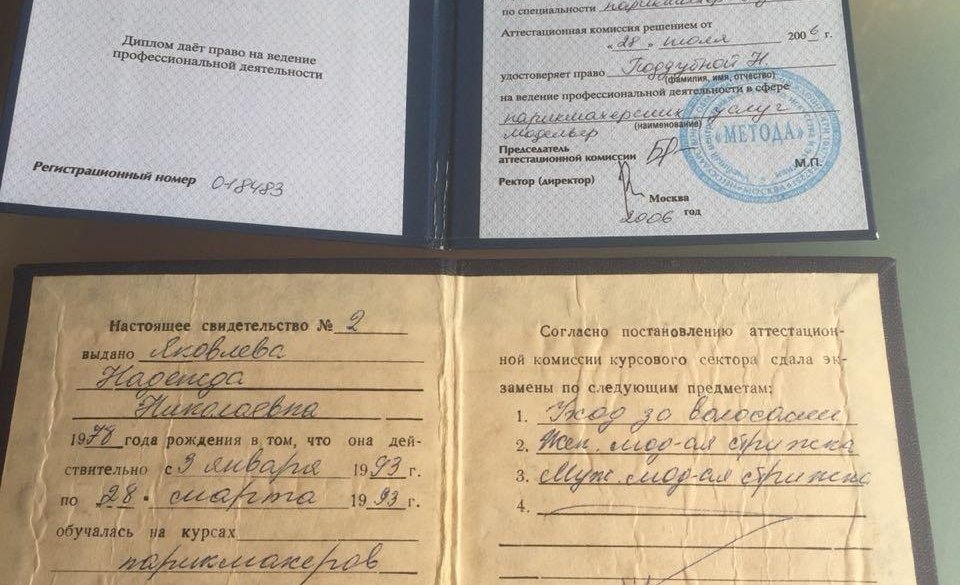 Диплом даёт право на ведение
профессиональной деятельности
Регистрационный номер 018483
по специальности парикмахер
Аттестационная комиссия решением от
"28" июля 2006 г.
удостоверяет право Поддубной Н.
(фамилия, имя, отчество)
на ведение профессиональной деятельности в сфере
парикмахерских услуг
(наименование)
модельер
Председатель
аттестационной комиссии
Ректор (директор)
М.П.
Москва
2006 год
«МЕТОДА»
Настоящее свидетельство № 2
выдано Яковлева
Надежда
Николаевна
1978 года рождения в том, что она дей-
ствительно с 3 января 1993 г.
по 28 марта 1993 г.
обучалась на курсах
парикмахеров
Согласно постановлению аттестацион-
ной комиссии курсового сектора сдала эк-
замены по следующим предметам:
1. Уход за волосами
2. Жен. мод-ая стрижка
3. Муж. мод-ая стрижка
4.